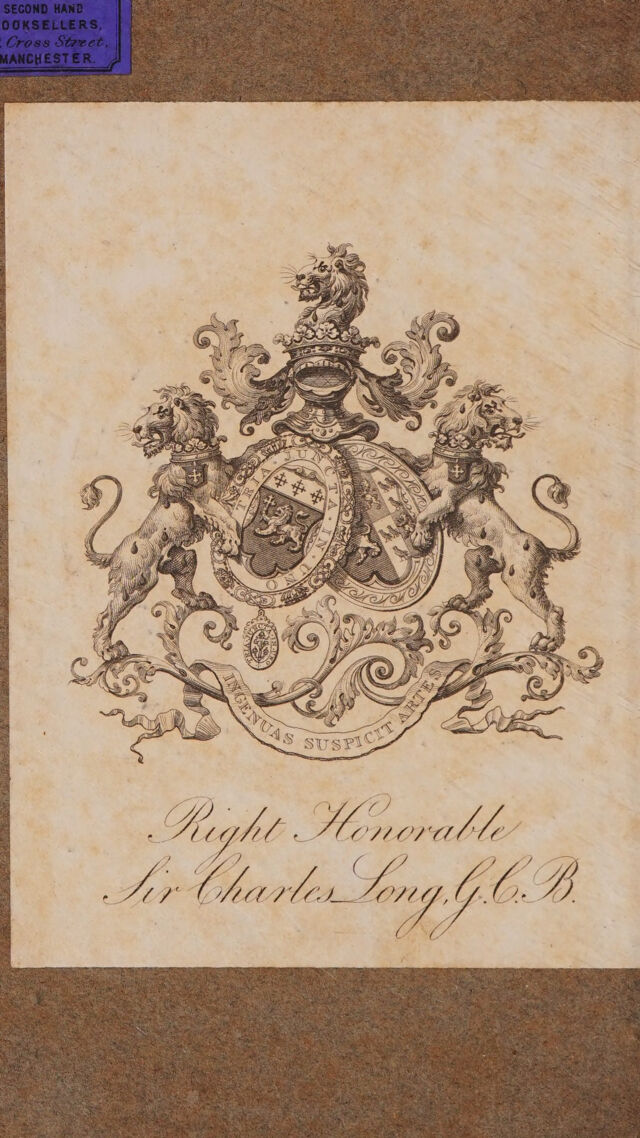 SECOND HAND
OOKSELLERS,
Cross Street,
MANCHESTER.
TRIA JUNCTA IN UNO
INGENUAS SUSPICIT ARTES
Right Honorable
Sir Charles Long, G.C.B.